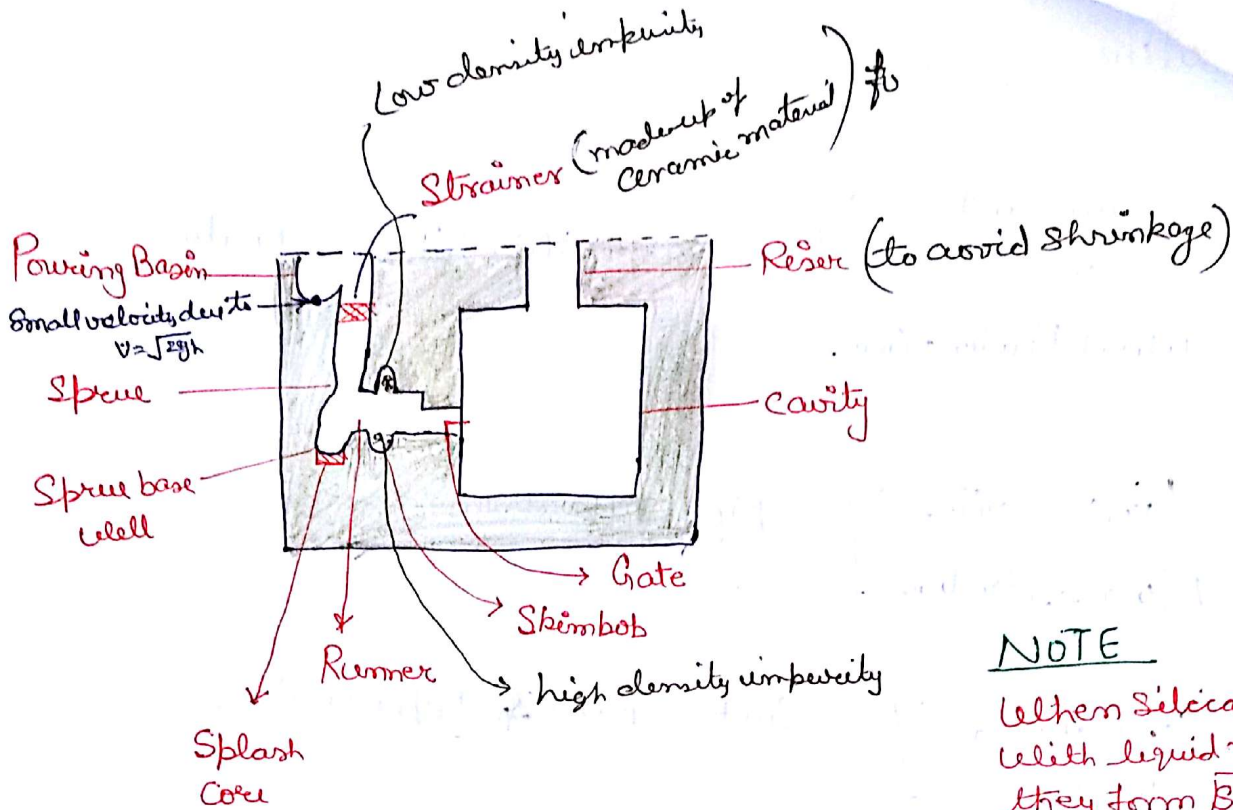 Low density impurity
Strainer (made up of
ceramic material)
Pouring Basin
Small velocity due to
V = √2gh
Sprue
Sprue base
Well
Riser (to avoid shrinkage)
Cavity
Gate
Skimbob
high density impurity
Runner
Splash
Core
NOTE
When Silica
With liquid
they form